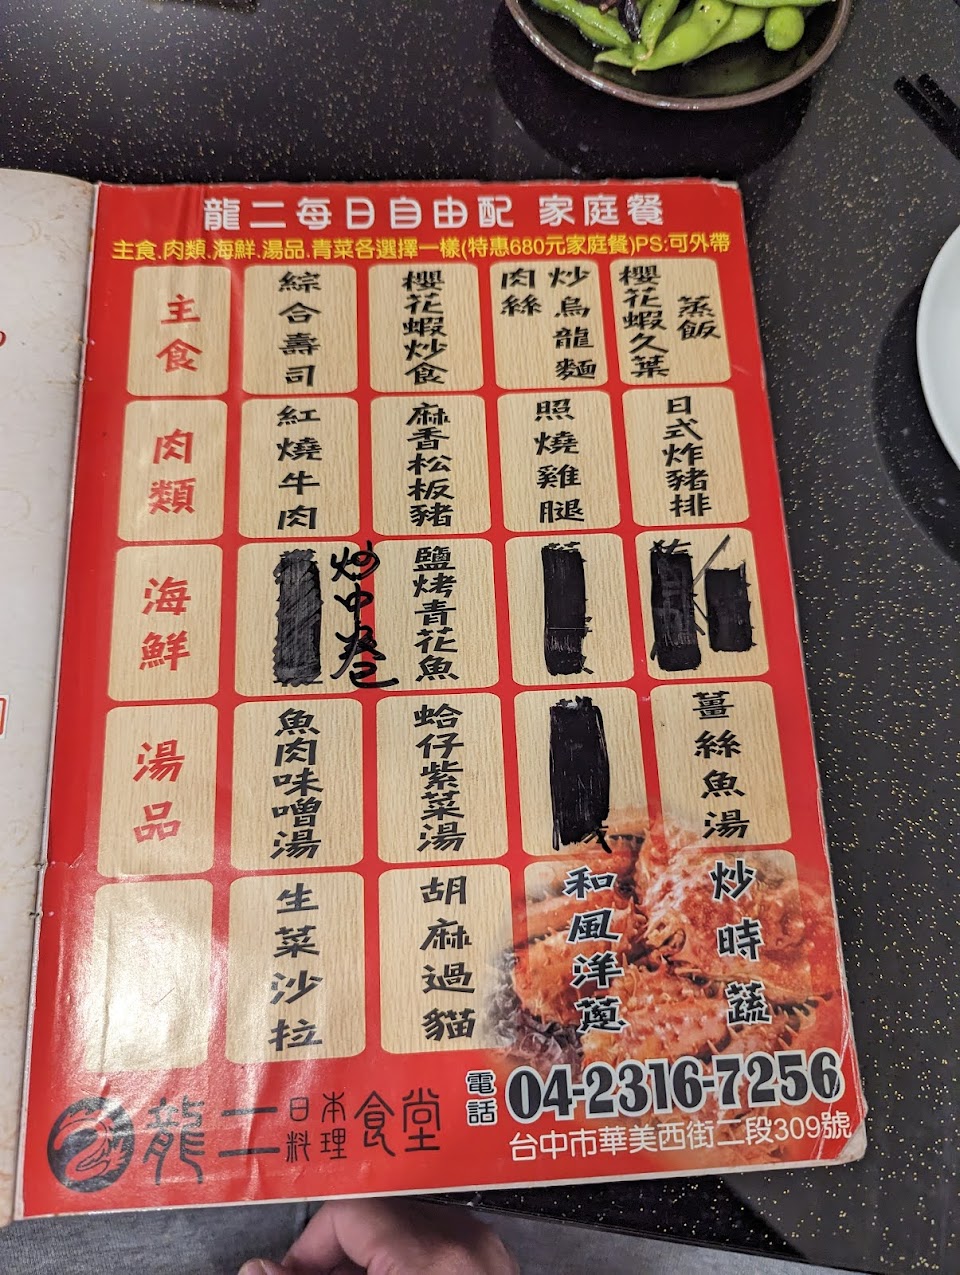 龍二每日自由配 家庭餐
主食.肉類.海鮮.湯品.青菜各選擇一樣(特惠680元家庭餐)PS:可外帶
主食
綜合壽司
櫻花蝦炒食
炒烏龍麵
肉絲
蒸飯
櫻花蝦久葉
肉類
紅燒牛肉
麻香松板豬
照燒雞腿
日式炸豬排
海鮮
炒中卷
鹽烤青花魚
湯品
魚肉味噌湯
蛤仔紫菜湯
薑絲魚湯
生菜沙拉
胡麻過貓
和風洋蔥
炒時蔬
龍二日本料理食堂
電話 04-2316-7256
台中市華美西街二段309號